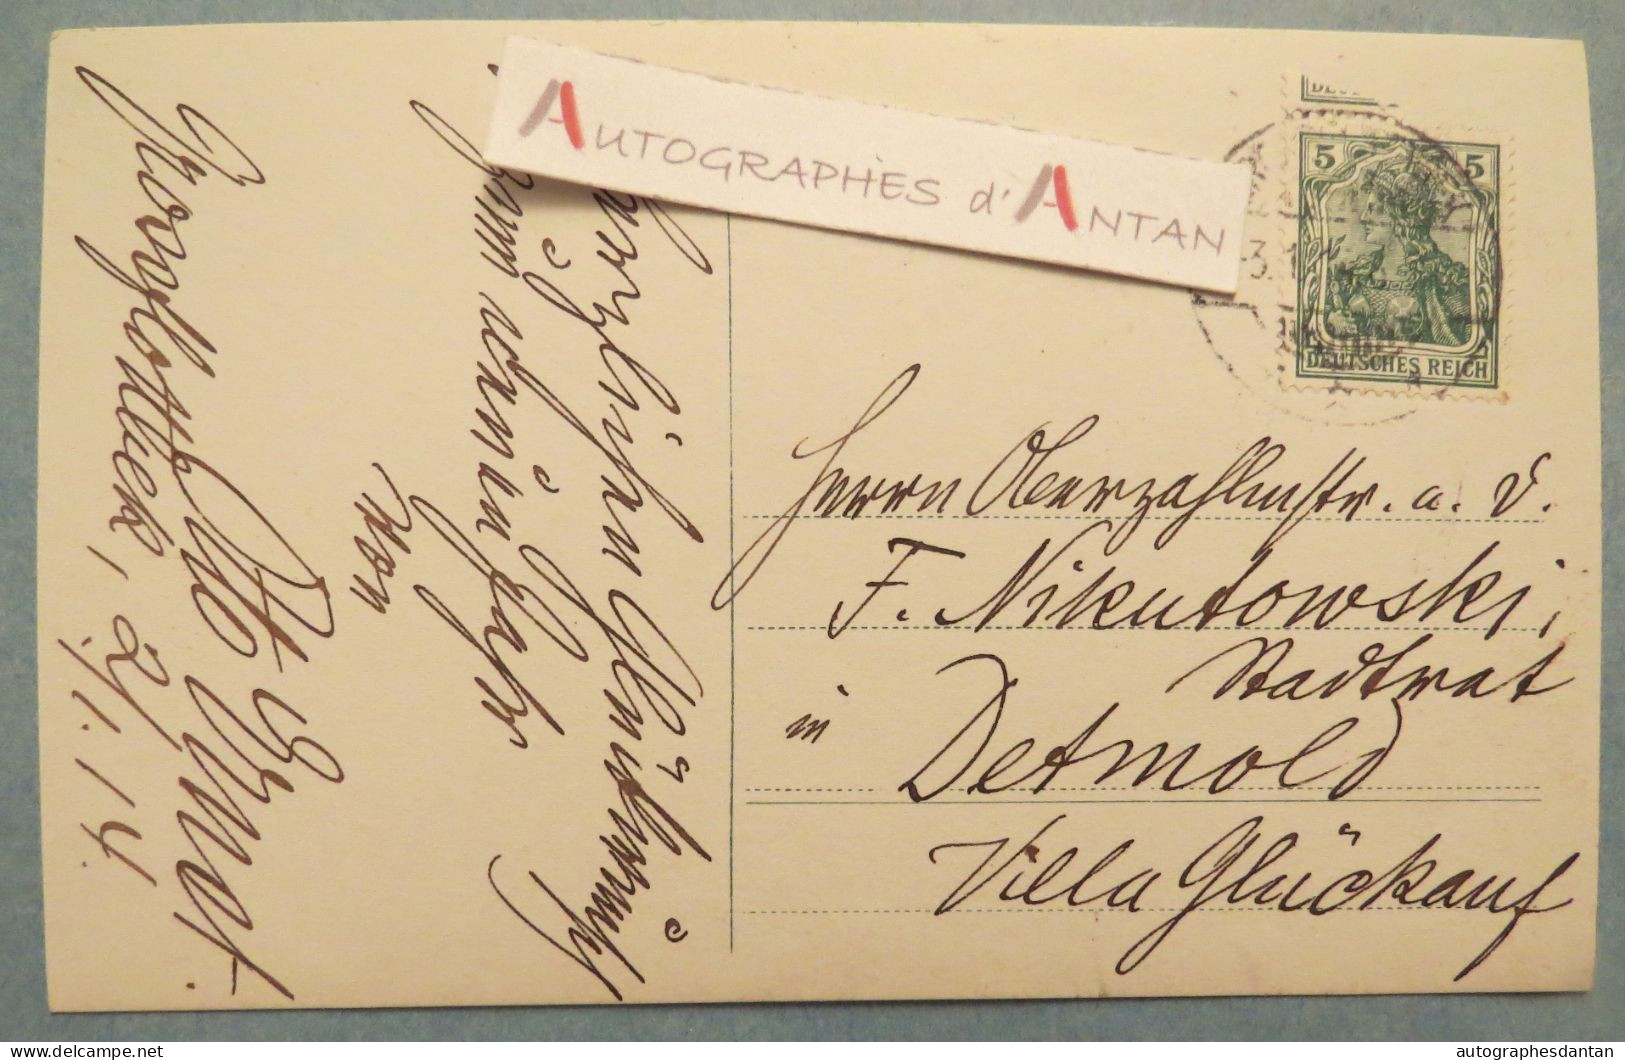 Herzlichen Glückwunsch
zum neuen Jahr
von
Otto Ernst.
2./1. 14.
AUTOGRAPHES d'ANTAN
5 5
DEUTSCHES REICH
Herrn Oberzahlmstr. a. D.
F. Nikutowski,
Stadtrat
in Detmold
Villa Glückauf
autographesdantan